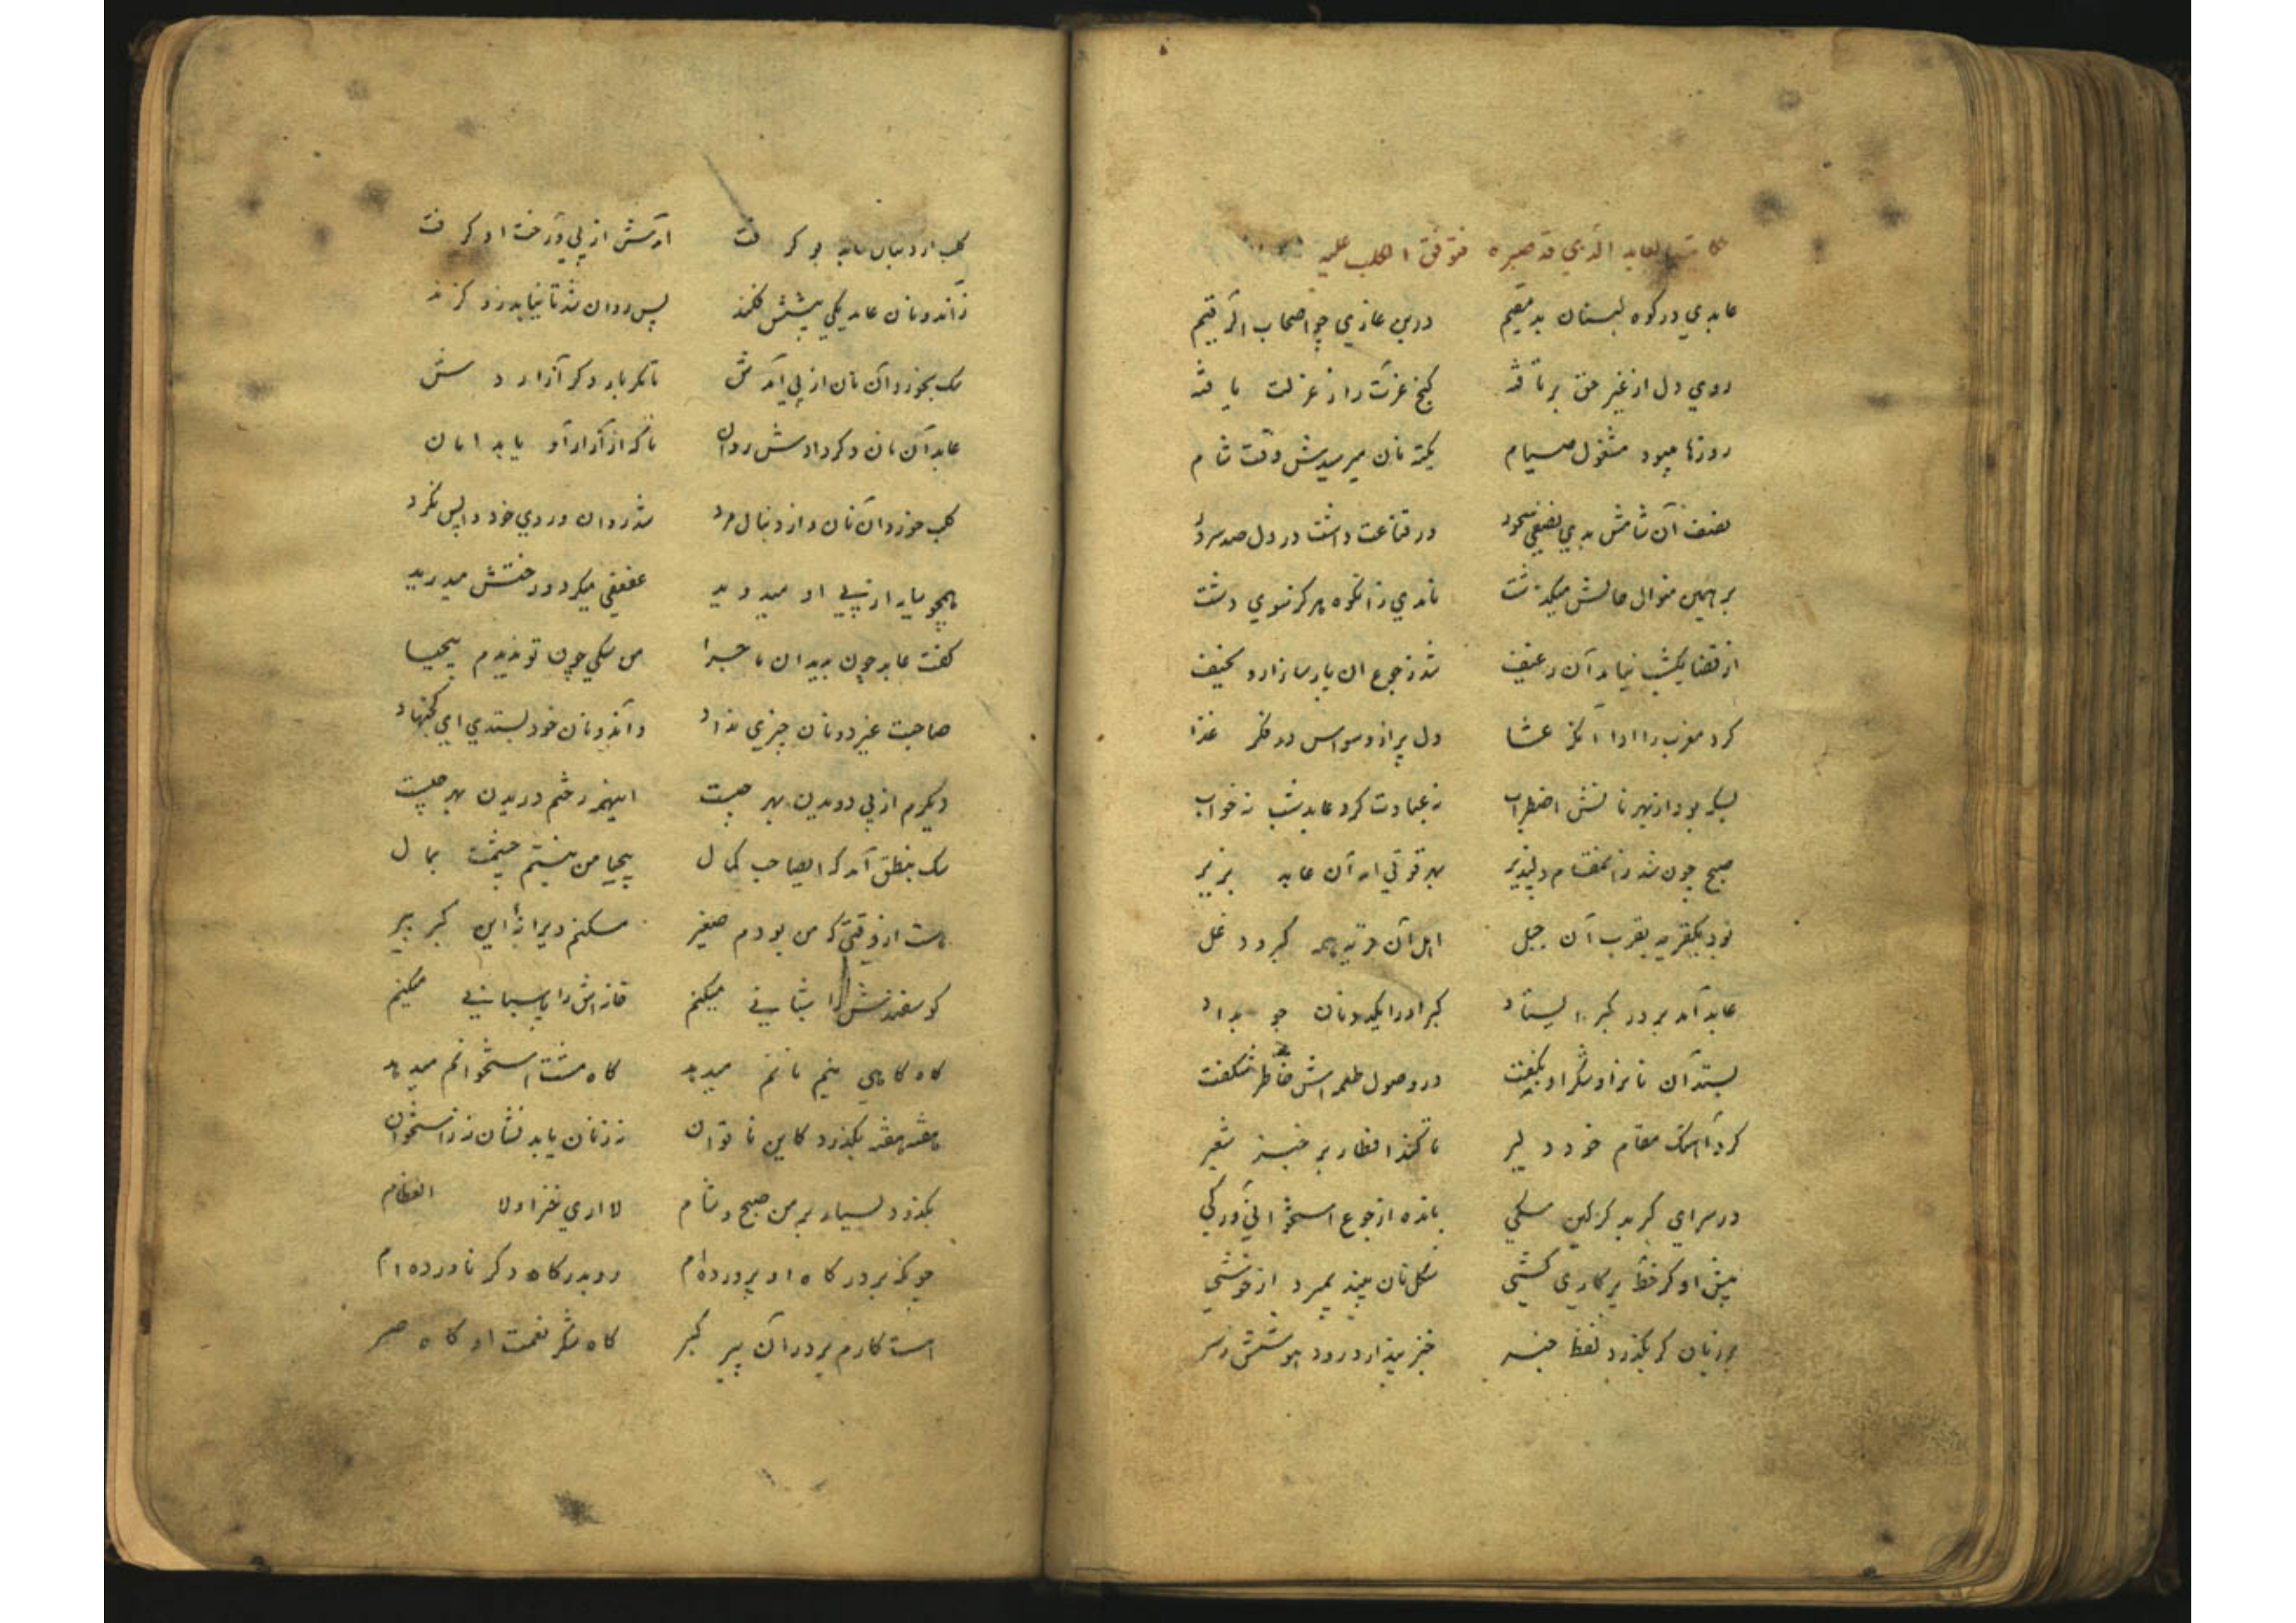 حکایت العابد الذي قد صبره فتوفق الکلب علیه
عابدي در کوه لبنان بد مقیم دربن غاري چو اصحاب الرقیم
روي دل از غیر حق برتافته کنج عزت را ز عزلت یافته
روزها میبود مشغول صیام یکته نان میرسیدش وقت شام
نصف آن شامش بدي نصفي سحور در قناعت داشت در دل صد سرور
بر همین منوال حالش میکذشت نامدي زانکوه هرکز سوي دشت
از قضا یکشب نیامد آن رغیف شد ز جوع ان پارسا زار و نحیف
کرد مغرب را ادا آنکه عشا دل پر از وسواس در فکر غذا
بسکه بود از بهر نانش اضطراب نه عبادت کرد عابد شب نه خواب
صبح چون شد زانمقام دلپذیر بهر قوتي امد آن عابد بزیر
بود یکقریه بقرب آن جبل اهل آن قریه همه کبر و دغل
عابد آمد بر در کبر ایستاد کبر اورا یکدو نان جو بداد
بستد آن نان را و شکر او بکفت در وصول طعمه اش خاطر شکفت
کرد آهنک مقام خود دلیر تا کند افطار بر خبز شعیر
در سراي کبر بد کرکین سکي مانده از جوع استخواني و رکي
پیش او کر خط پرکاري کشي شکل نان بیند بمیرد از خوشي
بر زبان کر بکذرد لفظ خبر خبز پندارد رود هوشش ز سر
کلب از دنبال عابد بو کرفت آمدش از پي و رخت او کرفت
زآندو نان عابد یکي پیشش فکند پس روان شد تا نیابد زو کزند
سک بخورد آن نان از پي آمدش تا مکر بار دکر آزاردش
عابد آن نان دکر دادش روان تا که از آزار او یابد امان
کلب خورد آن نان و از دنبال مرد شد روان و روي خود واپس نکرد
همچو سایه از پي او میدوید عفعفي میکرد و رختش میدرید
کفت عابد چون بدید ان ماجرا من سکي چون تو ندیدم بیحیا
صاحبت غیر دو نان چیزي نداد وآندو نان خود بستدي اي کجنهاد
دیکرم از پي دویدن بهر چیست اینهمه رختم دریدن بهر چیست
سک بنطق آمد که ایصاحب کمال بیحیا من نیستم چشمت بمال
هست از وقتي که من بودم صغیر مسکنم ویرانهٔ این کبر پیر
کوسفندش را شباني میکنم خانه اش را پاسباني میکنم
کاه کاهي نیم نانم میدهد کاه مشت استخوانم میدهد
هفته هفته بکذرد کاین ناتوان نه ز نان یابد نشان نه ز استخوان
بکذرد بسیار بر من صبح و شام لا اري خبزا ولا العظام
چونکه بر درکاه او پرورده ام رو بدرکاه دکر ناورده ام
هست کارم بر در آن پیر کبر کاه شکر نعمت او کاه صبر